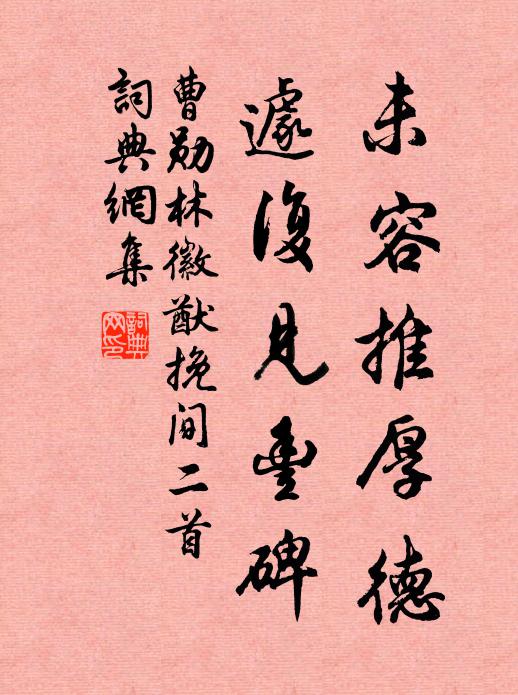 未容推厚德
遽復見豊碑
曹勛林徽猷挽间二首
詞典網集
詞典
网印